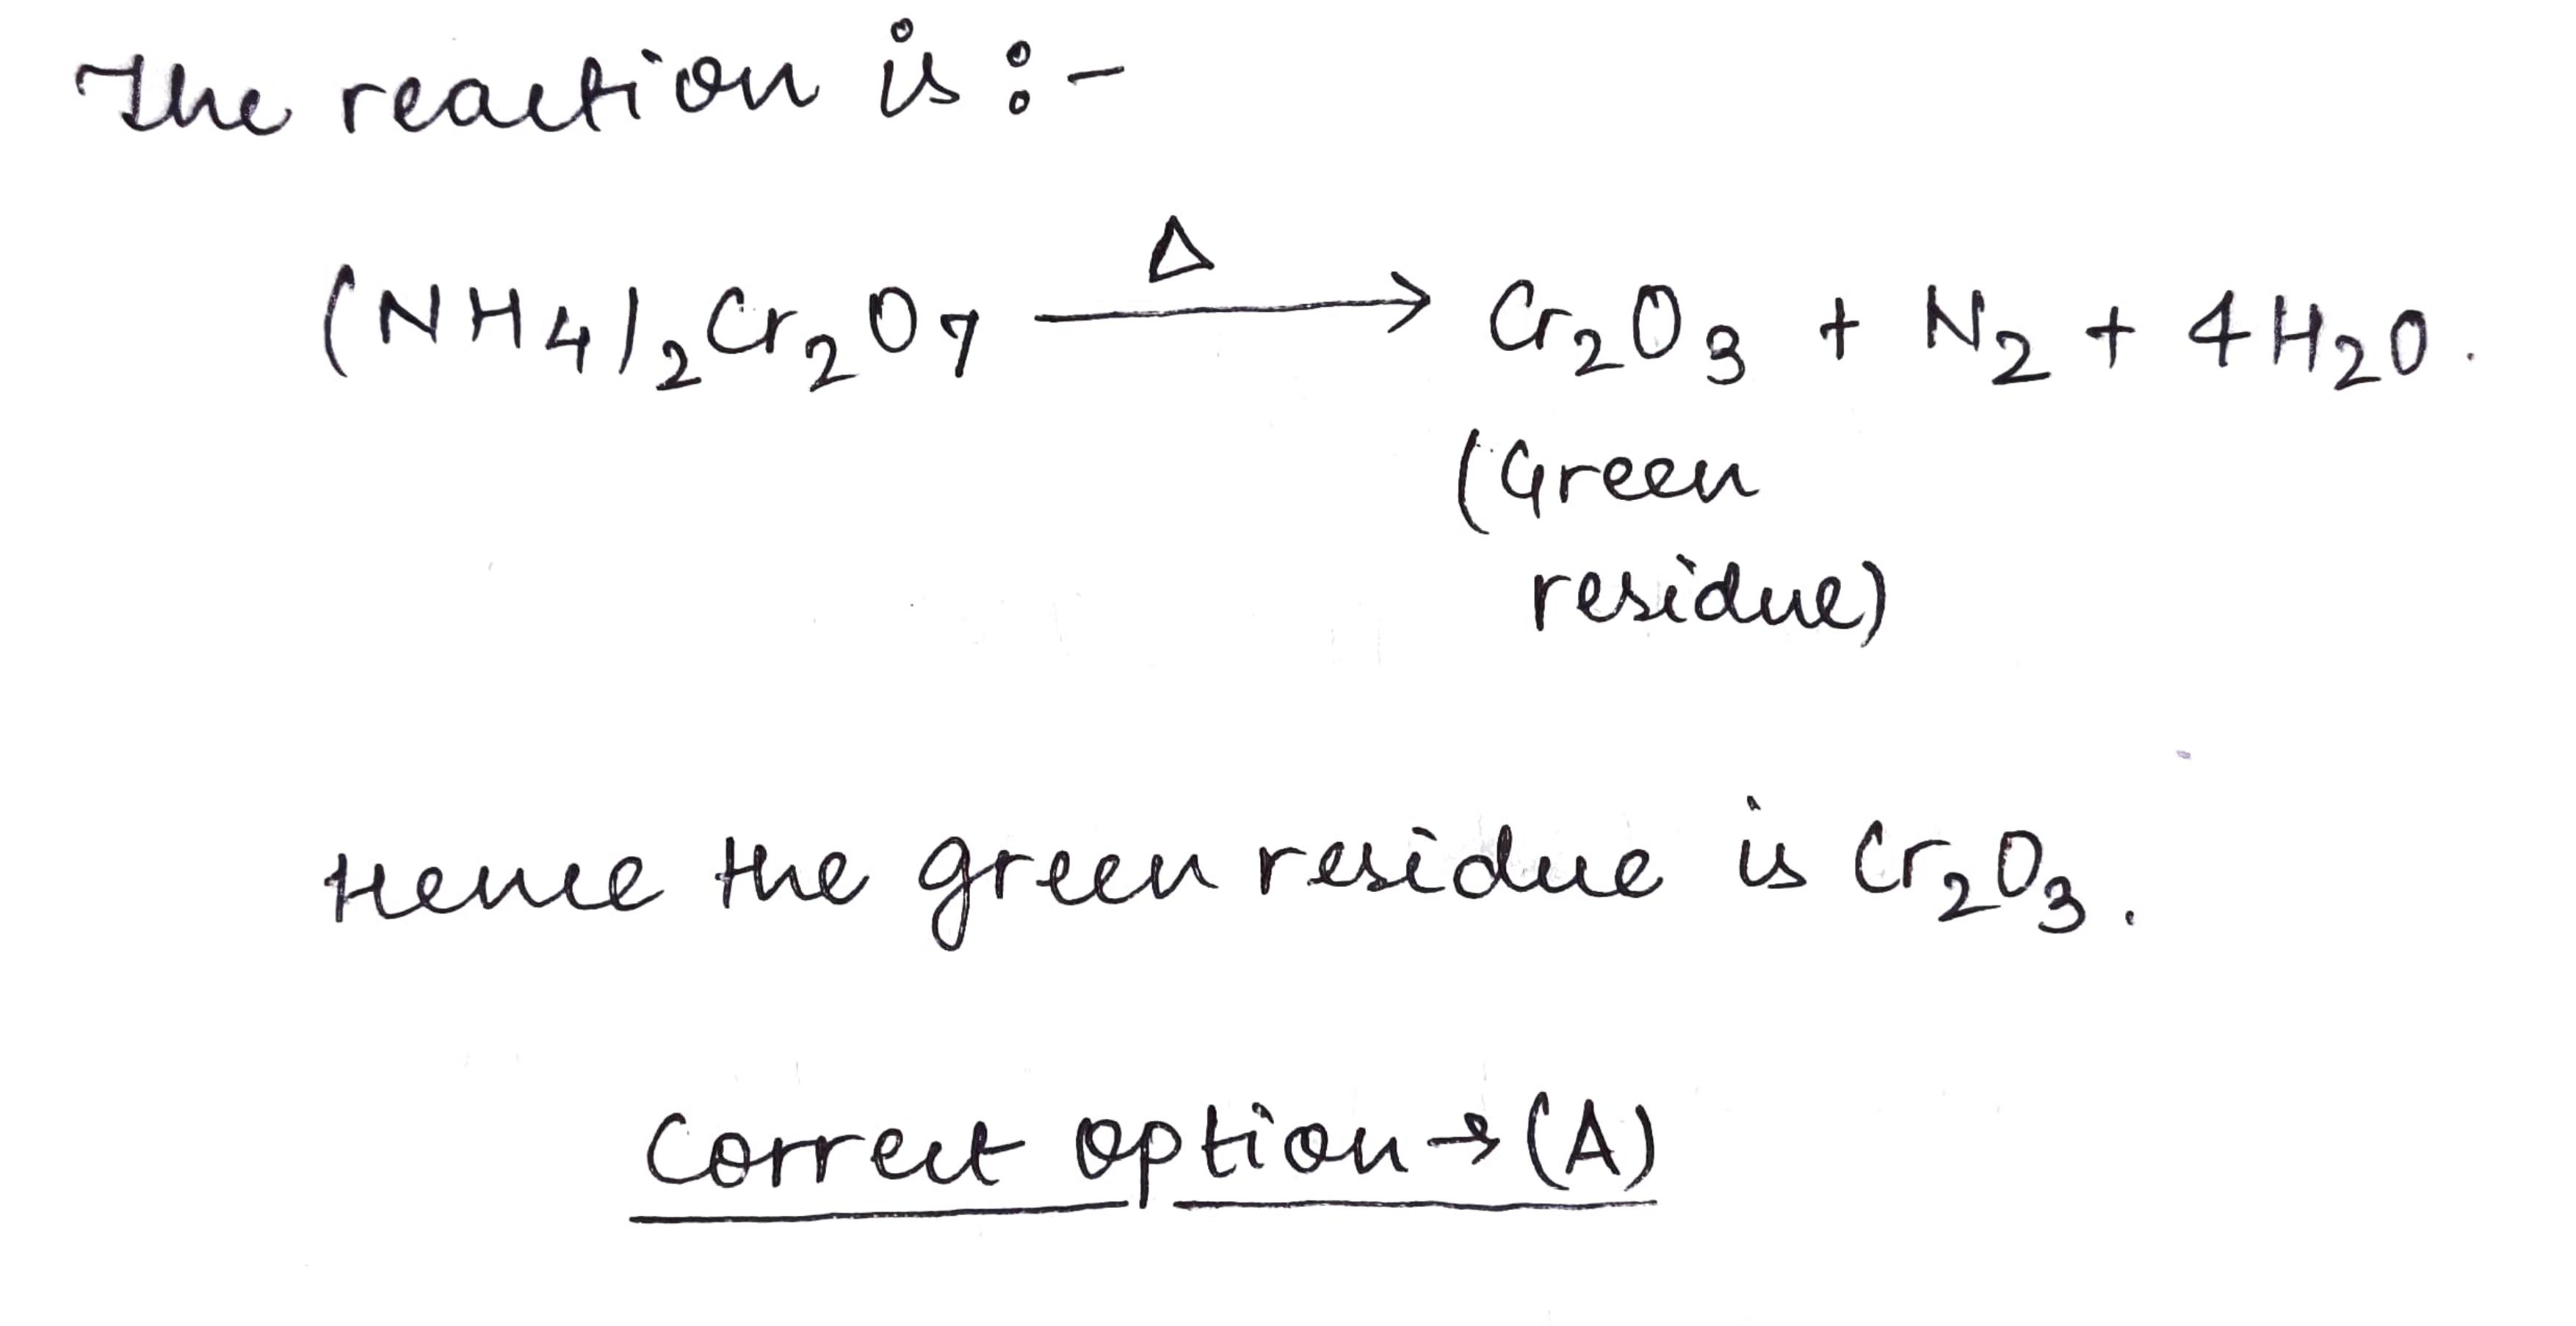 The reaction is :-
Δ
(NH4)2Cr2O7 ⟶ Cr2O3 + N2 + 4H2O.
(Green
residue)
Hence the green residue is Cr2O3.
Correct option → (A)